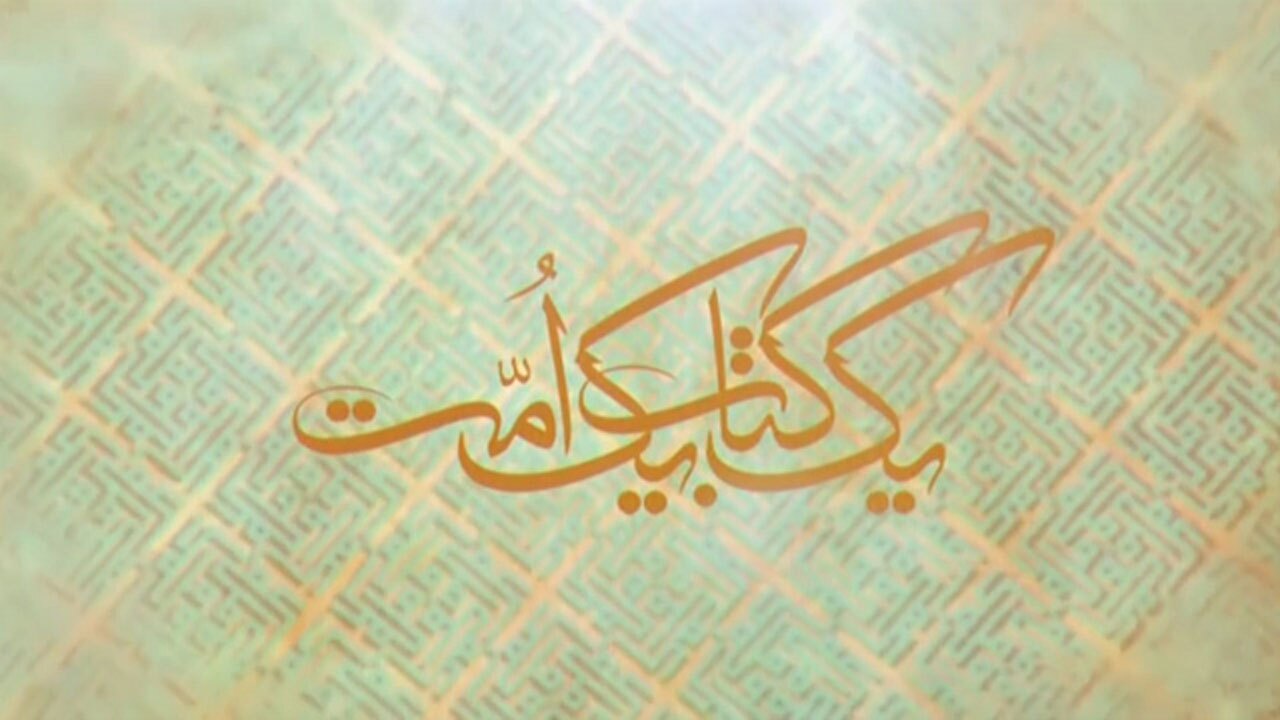 یک کتاب یک اُمّت